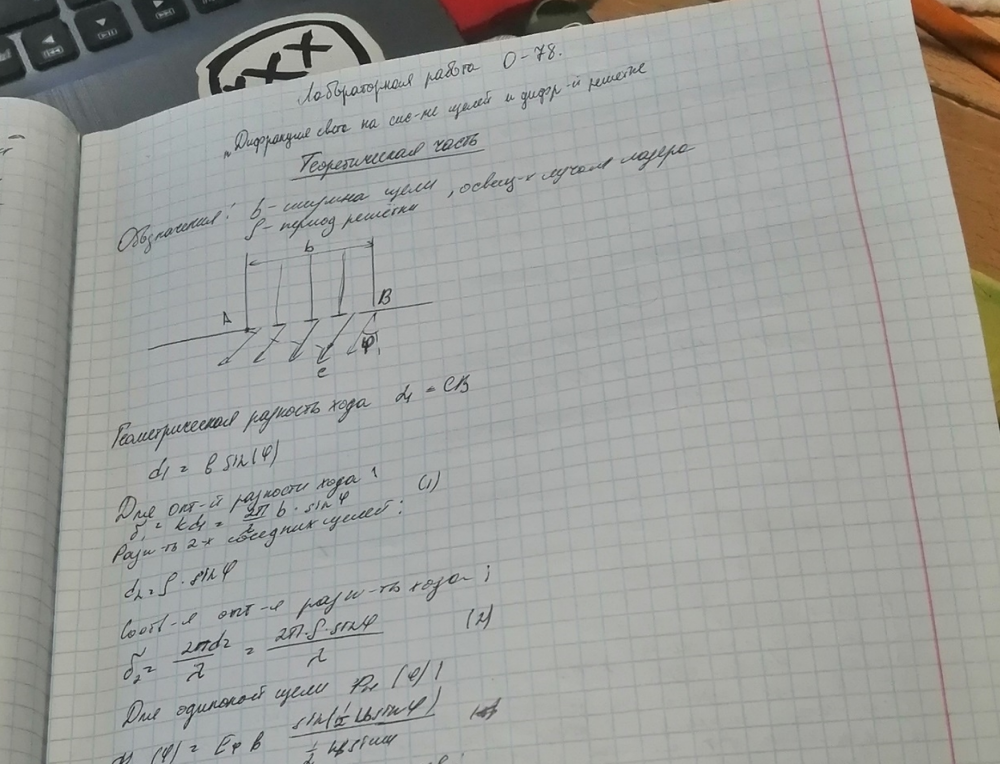 XXX
Лабораторная работа О-78.
"Дифракция света на сис-ме щелей и дифр-й решетке
Теоретическая часть
Обозначения: b - ширина щели
ρ - период решётки, освещ-х лучом лазера
b
A B
φ
C
Геометрическая разность хода d₁ = CB
d₁ = b sin(φ)
Для опт-й разности хода:
δ₁ = kd₁ = 2π/λ b · sinφ (1)
Разн-ть 2-х соседних щелей:
d₂ = ρ · sinφ
Соотв-я опт-я разн-ть хода:
δ₂ = 2πd₂/λ = 2π·ρ·sinφ/λ (2)
Для одинокой щели (φ)
(φ) = E b sin(½ kb sinφ)